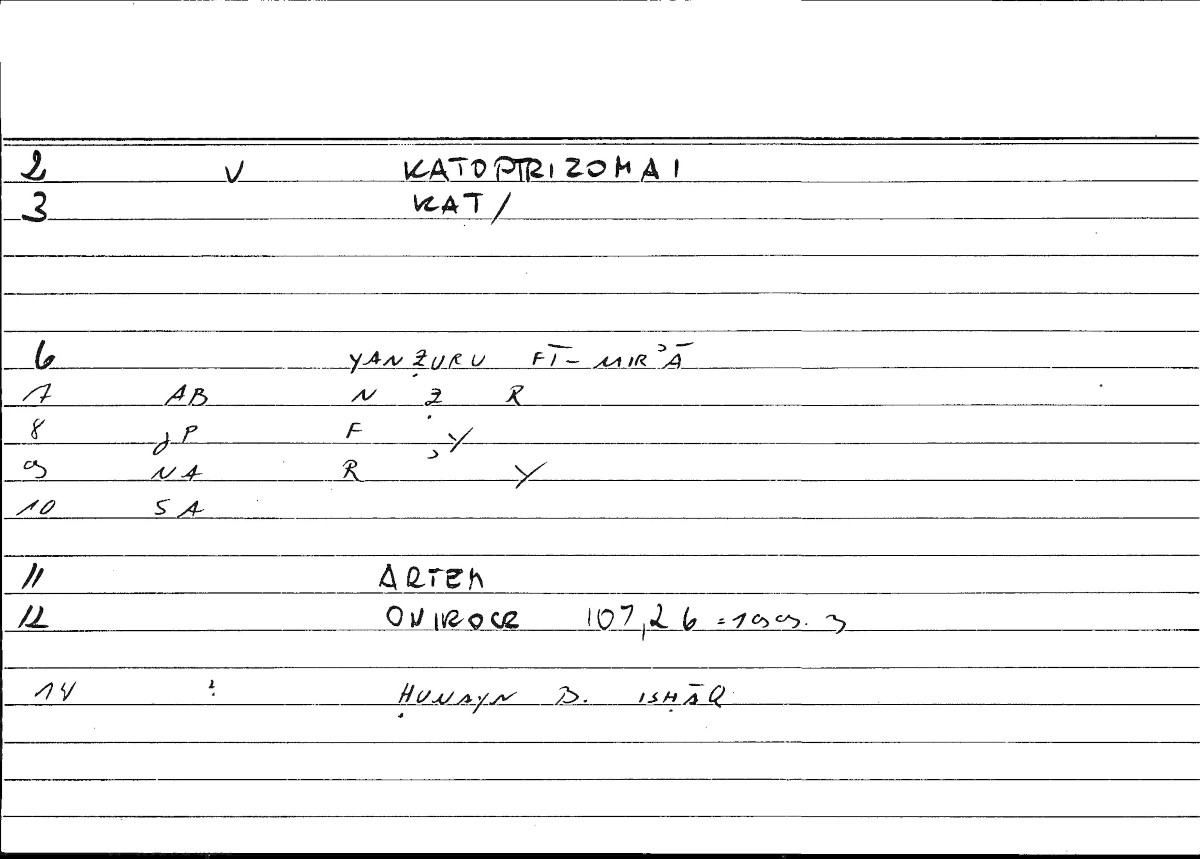 2 V KATOPTRIZOMAI
3 KAT/
6 YANẒURU FĪ- MIRʾĀ
7 AB N Ẓ R
8 JP F ʾY
9 NA R Y
10 SA
11 ARTEM
12 ONIROCR 107,26 = 199.3
14 ? ḤUNAYN B. ISḤĀQ